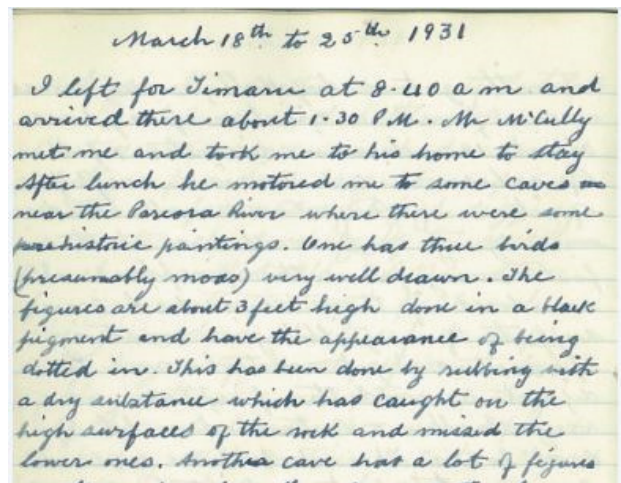 March 18th to 25th 1931
I left for Timaru at 8.40 a m and
arrived there about 1.30 P.M. Mr McCully
met me and took me to his home to stay
After lunch he motored me to some caves
near the Pareora River where there were some
prehistoric paintings. One has three birds
(presumably moas) very well drawn. The
figures are about 3 feet high done in a black
pigment and have the appearance of being
dotted in. This has been done by rubbing with
a dry substance which has caught on the
high surfaces of the rock and missed the
lower ones. Another cave has a lot of figures